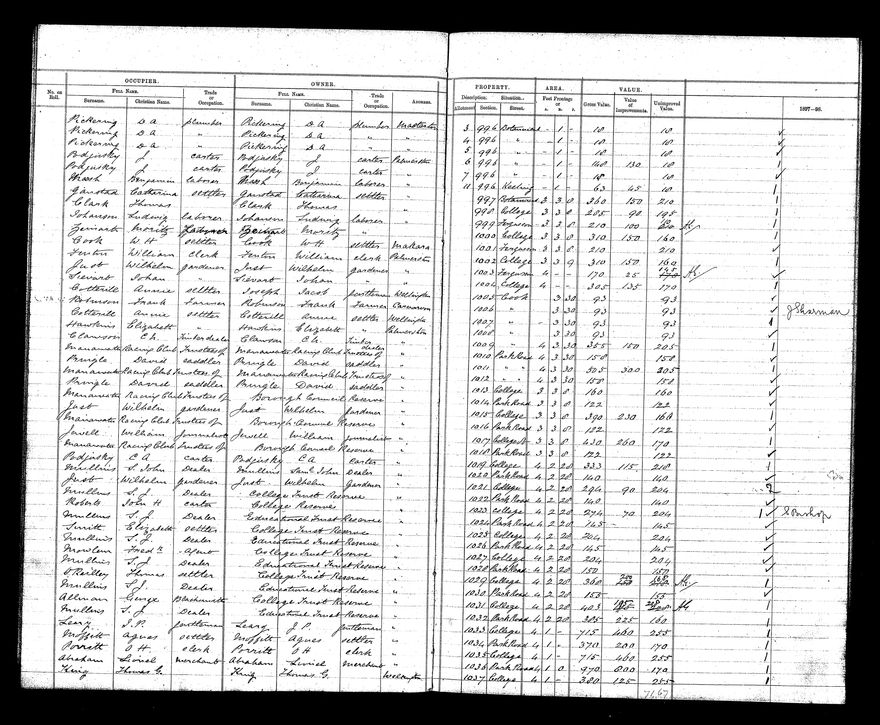 OCCUPIER. OWNER. PROPERTY. AREA. VALUE.
No. on Roll. FULL NAME. Trade or Occupation. FULL NAME. Trade or Occupation. ADDRESS. Description. Situation. Feet Frontage or Gross Value. Value of Improvements. Unimproved Value. 1897-98.
Surname. Christian Name. Surname. Christian Name. Allotment Section. Street. A. R. P.
Pickering D A plumber Pickering D A plumber Masterton 3 996 Botanical - 1 - 10 10
Pickering D A " Pickering D A " " 4 996 " - 1 - 10 10
Pickering D A " Pickering D A " " 5 996 " - 1 - 10 10
Podjinsky J carter Podjinsky J carter Palmerston 6 996 " - 1 - 140 130 10
Podjinsky J carter Podjinsky J carter " 7 996 " - 1 - 10 10
Benjamin laborer Benjamin laborer " 11 996 Keeling - 1 - 63 45 10
Catherina settler Catherina settler " 997 Botanical 3 3 0 360 150 210
Clark Thomas Clark Thomas " 998 College 3 3 0 285 90 195
Johansen Ludwig laborer Johansen Ludwig laborer " 999 Ferguson 3 3 0 210 100
Moritz laborer Moritz " " 1000 College 3 3 0 310 150 160
Cook W H settler Cook W H settler Makara 1001 Ferguson 3 3 0 210 210
William clerk William clerk Palmerston 1002 College 3 3 9 310 150 160
Just Wilhelm gardener Just Wilhelm gardener " 1003 Ferguson 4 - - 170 25
Sievart Johan " Sievart Johan " " 1004 College 4 - - 305 135 170
Cotterill Annie settler Joseph Jacob gentleman Wellington 1005 Cook - 3 30 93 93
Robinson Frank Farmer Robinson Frank Farmer 1006 " - 3 30 93 93 J Sharman
Cotterill Annie settler Cotterill Annie settler Wellington 1007 " - 3 30 93 93
Hawkins Elizabeth " Hawkins Elizabeth " Palmerston 1008 " - 3 30 93 93
Clawson C. H. Timber dealer Clawson C. H. Timber dealer " 1009 " 4 3 30 355 150 205
Manawatu Racing Club Trustees of Manawatu Racing Club Trustees of " 1010 Park Road 4 3 30 158 158
Pringle David saddler Pringle David saddler " 1011 " 4 3 30 505 300 205
Manawatu Racing Club Trustees of Manawatu Racing Club Trustees of " 1012 " 4 3 30 158 158
Pringle David saddler Pringle David saddler " 1013 College 3 3 0 160 160
Manawatu Racing Club Trustees of Borough Council Reserve " 1014 Park Road 3 3 0 122 122
Just Wilhelm gardener Just Wilhelm gardener " 1015 College 3 3 0 390 230 160
Manawatu Racing Club Trustees of Borough Council Reserve " 1016 Park Road 3 3 0 122 122
Jewell William journalist Jewell William journalist " 1017 College 3 3 0 430 260 170
Manawatu Racing Club Trustees of Borough Council Reserve " 1018 Park Road 3 3 0 122 122
Podjinsky C A carter Podjinsky C A carter " 1019 College 4 2 20 333 115 218
Mullins S. John Dealer Mullins Saml John Dealer " 1020 Park Road 4 2 20 140 140
Just Wilhelm gardener Just Wilhelm gardener " 1021 College 4 2 20 294 90 204
Mullins S. J. Dealer College Trust Reserve " 1022 Park Road 4 2 20 140 140
Roberts John H carter College Reserve " 1023 College 4 2 20 274 70 204
Mullins S. J Dealer Educational Trust Reserve " 1024 Park Road 4 2 20 145 145
Smith Elizabeth settler College Trust Reserve " 1025 College 4 2 20 204 204
Mullins S. J Dealer Educational Trust Reserve " 1026 Park Road 4 2 20 145 145
Mowlem Fred k Agent College Trust Reserve " 1027 College 4 2 20 204 204
Mullins S. J Dealer Educational Trust Reserve " 1028 Park Road 4 2 20 150 150
O'Reilley Thomas settler College Trust Reserve " 1029 College 4 2 20 360
Mullins S. J Dealer Educational Trust Reserve " 1030 Park Road 4 2 20 155 155
Allman George Blacksmith College Trust Reserve " 1031 College 4 2 20 403
Mullins S. J Dealer Educational Trust Reserve " 1032 Park Road 4 2 20 385 225 160
Leary J. P. gentleman Leary J P gentleman " 1033 College 4 1 - 715 460 255
Moffitt Agnes settler Moffitt Agnes settler " 1034 Park Road 4 1 - 370 200 170
Porritt O H clerk Porritt O H clerk " 1035 College 4 1 - 715 460 255
Abraham Lionel merchant Abraham Lionel merchant " 1036 Park Road 4 1 0 970 800 170
King Thomas G. King Thomas G. Wellington 1037 College 4 1 - 380 125 255